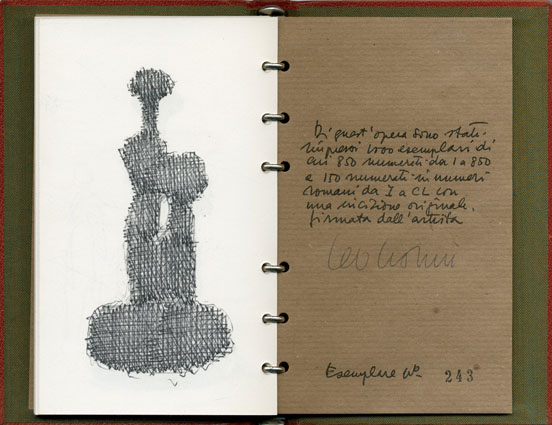 Di quest'opera sono stati
impressi 1000 esemplari di
cui 850 numerati da 1 a 850
e 150 numerati in numeri
romani da I a CL con
una incisione originale,
firmata dall'artista
Esemplare N°. 243